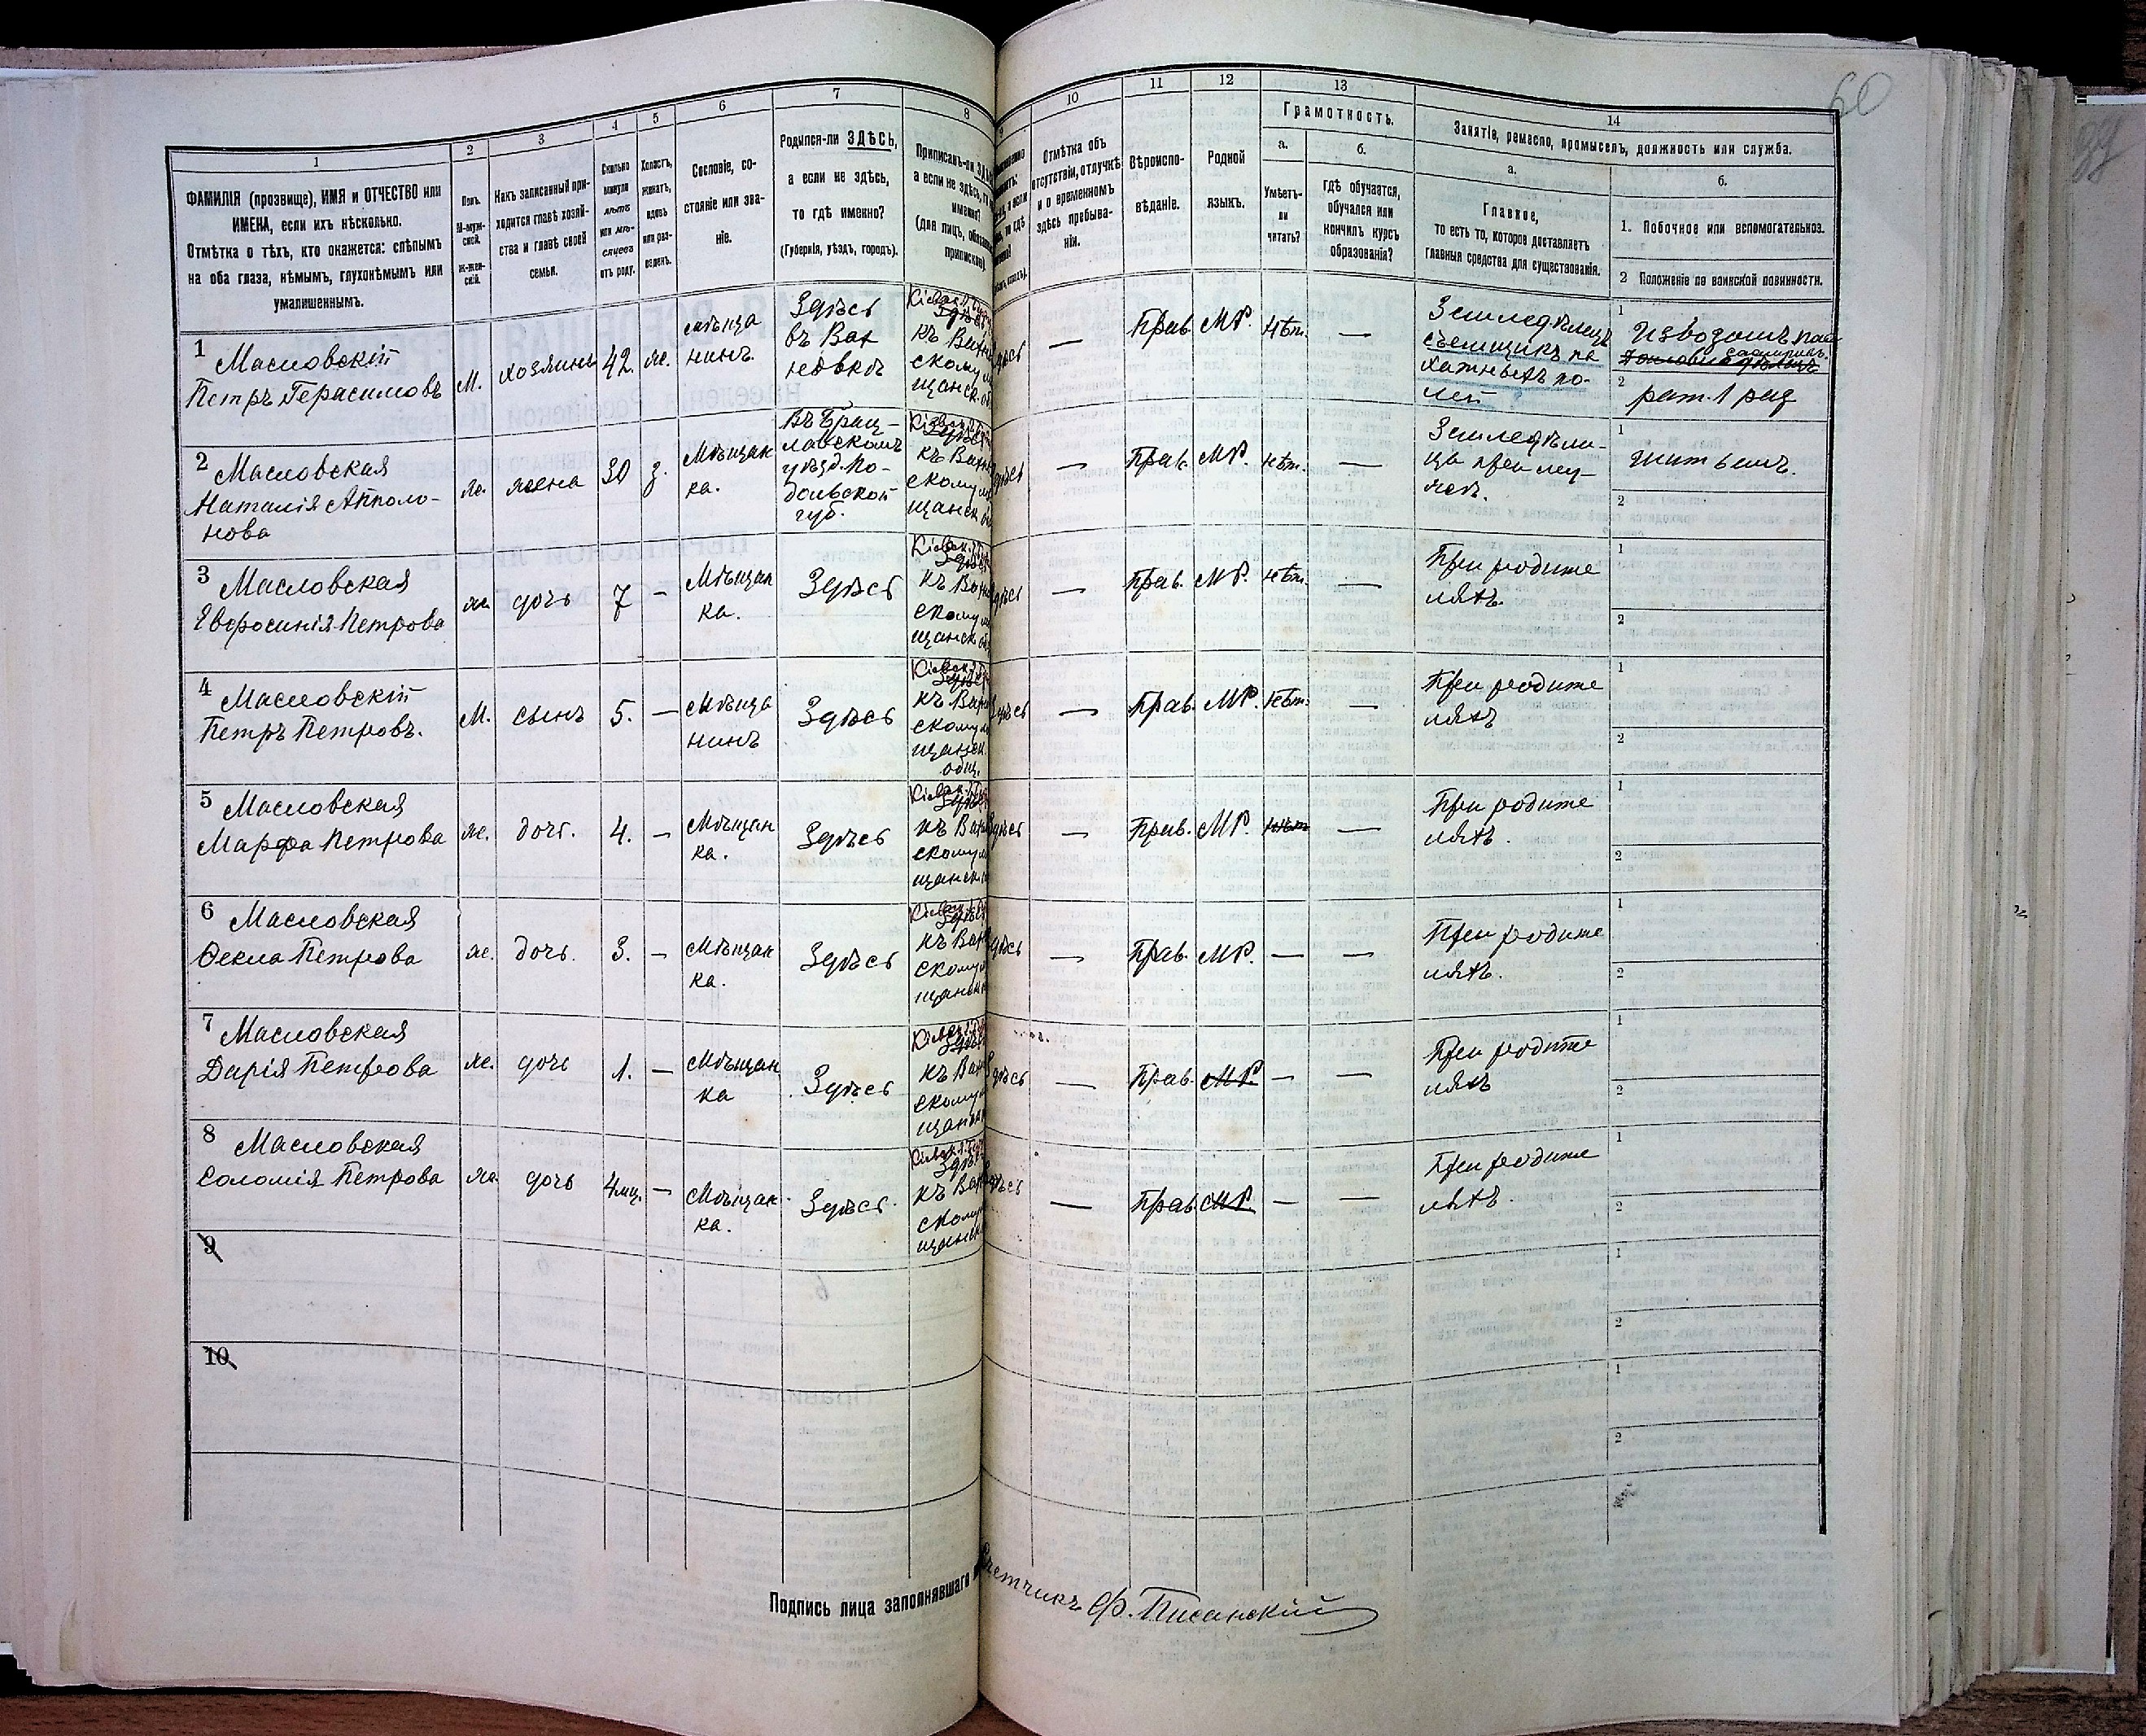 60
1
2
3
4
5
6
7
8
9
10
11
12
13
14
ФАМИЛІЯ (прозвище), ИМЯ и ОТЧЕСТВО или
ИМЕНА, если ихъ нѣсколько.
Отмѣтка о тѣхъ, кто окажется: слѣпымъ
на оба глаза, нѣмымъ, глухонѣмымъ или
умалишеннымъ.
Полъ.
М-муж-
ской.
Ж-жен-
скій.
Какъ записанный при-
ходится главѣ хозяй-
ства и главѣ своей
семьи.
Сколько
минуло
лѣтъ
или мѣ-
сяцевъ
отъ роду.
Холостъ,
женатъ,
вдовъ
или раз-
веденъ.
Сословіе, со-
стояніе или зва-
ніе.
Родился-ли ЗДѢСЬ,
а если не здѣсь,
то гдѣ именно?
(Губернія, уѣздъ, городъ).
Приписанъ-ли
а если не здѣсь,
(для лицъ,
припискою).
Отмѣтка объ
отсутствіи, отлучкѣ
и о временномъ
здѣсь пребыва-
ніи.
Вѣроиспо-
вѣданіе.
Родной
языкъ.
Грамотность.
а.
Умѣетъ-
ли
читать?
б.
гдѣ обучается,
обучался или
кончилъ курсъ
образованія?
Занятіе, ремесло, промыселъ, должность или служба.
а.
Главное,
то есть то, которое доставляетъ
главныя средства для существованія.
б.
1. Побочное или вспомогательное.
2 Положеніе по воинской повинности.
1 Масловскій
Петръ Герасимовъ
М. хозяинъ 42. ж.
Мѣща
нинъ.
Здѣсь
въ Вах
невкѣ
къ Вах
скому
щанск.
—
Прав. МР. нѣт. —
Земледѣлецъ
съемщикъ па
хатныхъ по-
лей
1 Извозомъ
2 рат. 1 раз
2 Масловская
Наталія Апполо-
нова
ж. жена 30 з.
Мѣщан
ка.
Въ Брац-
лавскомъ
уѣзд. По-
дольской
губ.
скому
щанск.
—
Прав. МР. нѣт. —
Земледѣли-
ца при му-
жѣ.
1 Шитьемъ.
2
3 Масловская
Евфросинія Петрова
ж. дочь 7 —
Мѣщан
ка.
Здѣсь
скому
щанск.
—
Прав. МР. нѣт. —
При родите
ляхъ.
1
2
4 Масловскій
Петръ Петровъ.
М. сынъ 5. —
Мѣща
нинъ
Здѣсь
скому
щанск.
общ.
—
Прав. МР. нѣт. —
При родите
ляхъ
1
2
5 Масловская
Марфа Петрова
ж. дочь. 4. —
Мѣщан
ка.
Здѣсь
скому
щанск.
—
Прав. МР. нѣт —
При родите
ляхъ.
1
2
6 Масловская
Ѳекла Петрова
ж. дочь. 3. —
Мѣщан
ка.
Здѣсь
скому
—
Прав. МР. — —
При родите
ляхъ.
1
2
7 Масловская
Дарія Петрова
ж. дочь 1. —
Мѣщан
ка
Здѣсь
скому
—
Прав. МР. — —
При родите
ляхъ
1
2
8 Масловская
Соломія Петрова
ж. дочь 4 мц. —
Мѣщан
ка.
Здѣсь
скому
—
Прав. МР. — —
При родите
ляхъ.
1
2
9
1
2
10
1
2
Подпись лица заполнявшаго
Счетчикъ Ф. Писанскій